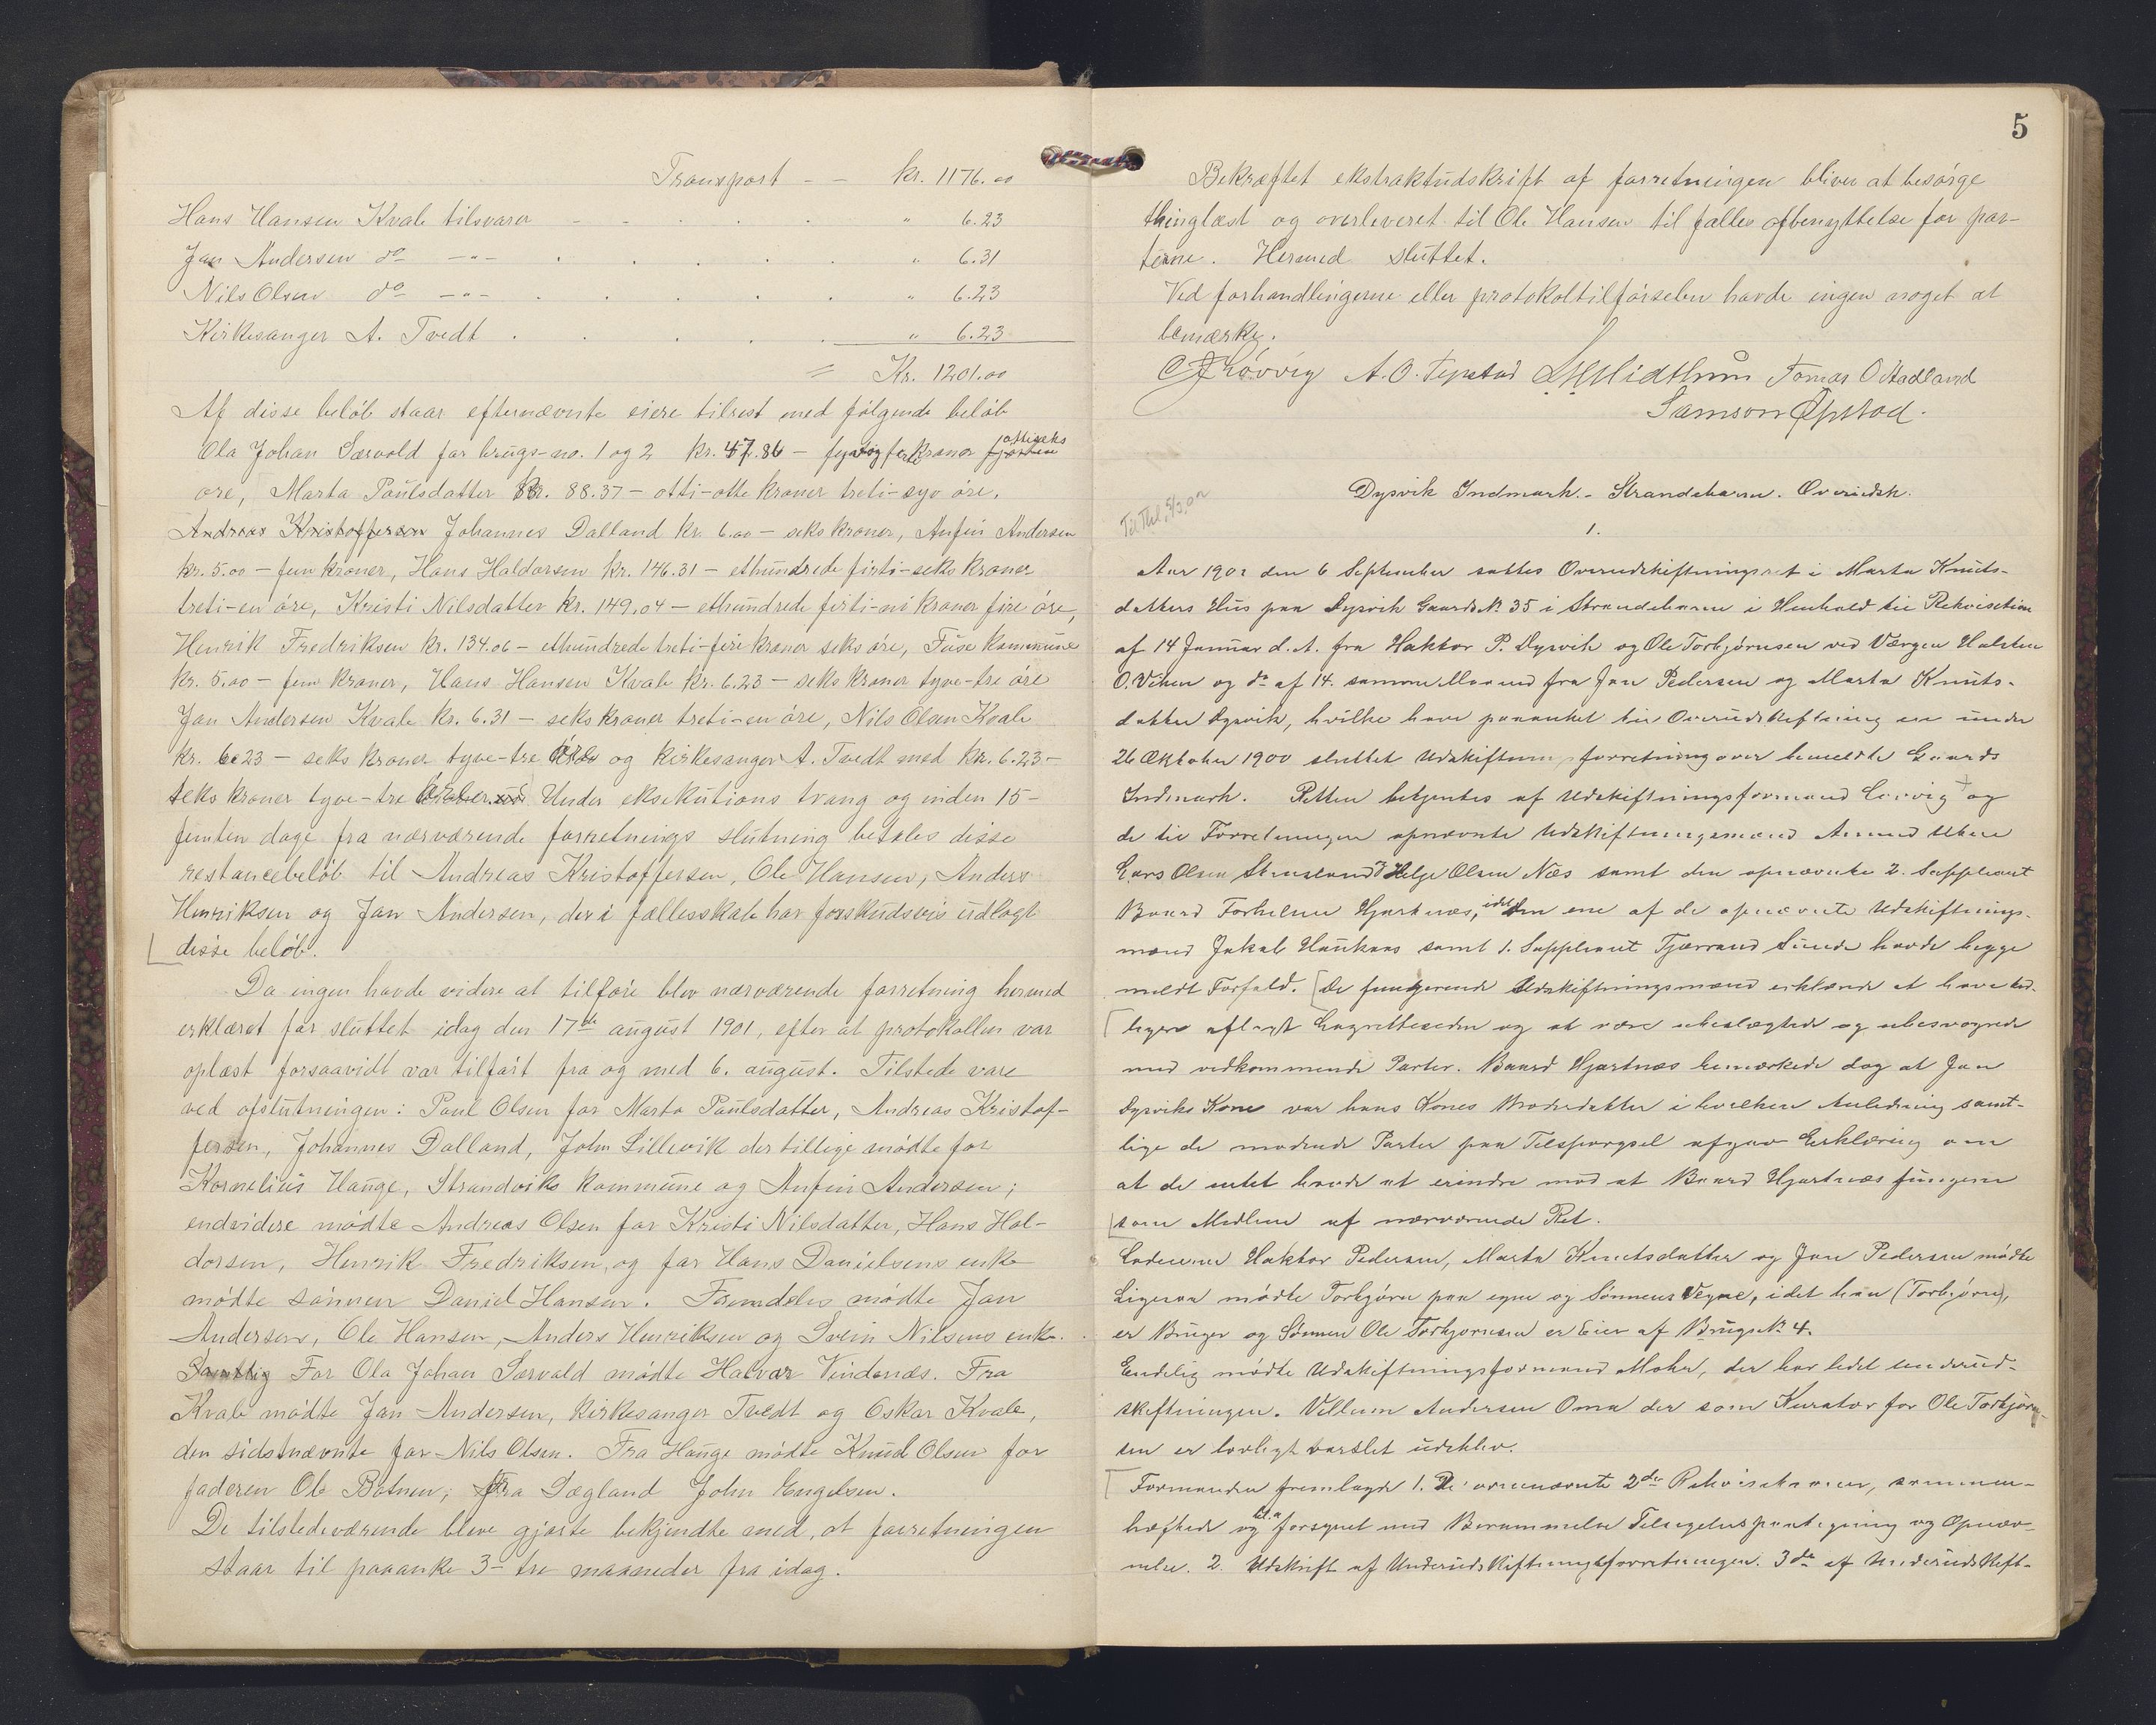 Transport - - kr. 1176.00
Hans Hansen Kvale tilsvarer - - . . . " 6.23
Jan Andersen do -"- . . . . . " 6.31
Nils Olsen do -"- . . . . . " 6.23
Kirkesanger A. Tvedt . . . . . " 6.23
= Kr. 1201.00
Af disse beløb staar efternævnte eiere tilrest med følgende beløb
Ola Johan Særvold for brugs-no. 1 og 2 kr. 47.86 - kroner ottiseks
øre, Marta Paulsdatter kr. 88.37 - otti-otte kroner treti-syv øre,
Andreas Kristoffersen Johannes Dalland kr. 6.00 - seks kroner, Anfin Andersen
kr. 5.00 - fem kroner, Hans Haldorsen kr. 146.31 - ethundrede firti-seks kroner
treti-en øre, Kristi Nilsdatter kr. 149.04 - ethundrede firti-ni kroner fire øre,
Henrik Fredriksen kr. 134.06 - ethundrede treti-fire kroner seks øre, Fuse kommune
kr. 5.00 - fem kroner, Hans Hansen Kvale kr. 6.23 - seks kroner tyve-tre øre
Jan Andersen Kvale kr. 6.31 - seks kroner treti-en øre, Nils Olsen Kvale
kr. 6.23 - seks kroner tyve-tre øre og kirkesanger A. Tvedt med kr. 6.23 -
seks kroner tyve-tre Under eksekutions tvang og inden 15-
femten dage fra nærværende forretnings slutning betales disse
restancebeløb til Andreas Kristoffersen, Ole Hansen, Anders
Henriksen og Jan Andersen, der i fællesskab har forskudsvis udlagt
disse beløb.
Da ingen havde videre at tilføre blev nærværende forretning hermed
erklæret for sluttet idag den 17de august 1901, efter at protokollen var
oplæst forsaavidt var tilført fra og med 6. august. Tilstede vare
ved afslutningen: Paul Olsen for Marta Paulsdatter, Andreas Kristof-
fersen, Johannes Dalland, John Lillevik der tillige mødte for
Kornelius Hauge, Strandviks kommune og Anfin Andersen;
endvidere mødte Andreas Olsen for Kristi Nilsdatter, Hans Hal-
dorsen, Henrik Fredriksen, og for Hans Danielsens enke
mødte sønnen Daniel Hansen. Fremdeles mødte Jan
Andersen, Ole Hansen, Anders Henriksen og Svein Nilsens enke.
For Ola Johan Særvold mødte Halvor Vindenæs. Fra
Kvale mødte Jan Andersen, kirkesanger Tvedt og Oskar Kvale,
den sidstnævnte for Nils Olsen. Fra Hauge mødte Knud Olsen for
faderen Ole Botnen; fra Sægland John Engelsen.
De tilstedeværende bleve gjorte bekjendte med, at forretningen
staar til paaanke 3- tre maaneder fra idag.
5
Bekræftet ekstraktudskrift af forretningen bliver at besørge
thinglæst og overleveret til Ole Hansen til fælles afbenyttelse for par-
terne. Hermed sluttet.
Ved forhandlingerne eller protokoltilførselen havde ingen noget at
bemærke.
Løvvig A. O. Tepstad Midthun Tomas O Hadland
Samson Øpstad.
Dysvik Indmark. - Strandebarm. Overudsk.
1.
Aar 1902 den 6 September sattes Overudskiftningsret i Marta Knuts-
datters Hus paa Dysvik Gaards No. 35 i Strandebarm i Henhold til Rekvisition
af 14 Januar d. A. fra Haktor P. Dysvik og Ole Torbjørnsen ved Værgen Halsten
O. Viken og do af 14. samme Maaned fra Jan Pedersen og Marta Knuts-
datter Dysvik, hvilke have paaanket til Overudskiftning en under
26 Oktober 1900 sluttet Udskiftningsforretning over bemeldte Gaards
Indmark. Retten betjentes af Udskiftningsformand Løvvig og
de til Forretningen opnævnte Udskiftningsmænd Amund
Lars Olsen og Helge Olsen Næs samt den opnævnte 2. Suppleant
Baard Torkelsen Hjartnæs, idet den ene af de opnævnte Udskiftnings-
mænd Jakob Haukaas samt 1. Suppleant Tjærand Sunde havde begge
meldt Forfald. De fungerende Udskiftningsmænd erklærede at have tid-
ligere aflagt Lagretteseden og at være ubeslægtede og ubesvogrede
med vedkommende Parter. Baard Hjartnæs bemærkede dog at Jan
Dysviks Kone var hans Kones Broderdatter i hvilken Anledning samt-
lige de mødende Parter paa Tilspørgsel afgav Erklæring om
at de intet havde at erindre mod at Baard Hjartnæs fungerer
som Medlem af nærværende Ret.
Lodeierne Haktor Pedersen, Marta Knutsdatter og Jan Pedersen mødte
Ligesaa mødte Torbjørn paa egne og Sønnens Vegne, idet han (Torbjørn),
er Bruger og Sønnen Ole Torbjørnsen er Eier af Brugs No 4.
Endelig mødte Udskiftningsformand Mohr, der har ledet underud-
skiftningen. Villum Andersen Oma der som Kurator for Ole Torbjørn-
sen er lovligt varslet udeblev.
Formanden fremlagde 1. De ovennævnte 2de Rekvisitioner, sammen-
hæftede og bl.a. forsynet med Berammelse Tilsigelsespaategning og Opnæv-
nelse. 2. Udskrift af Underudskiftningsforretningen. 3 do af Underudskift-